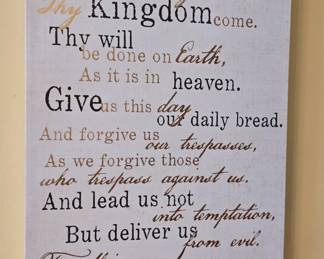 Thy Kingdom come.
Thy will
be done on Earth,
As it is in heaven.
Give us this day
our daily bread.
And forgive us
our trespasses,
As we forgive those
who trespass against us.
And lead us not
into temptation,
But deliver us
from evil.